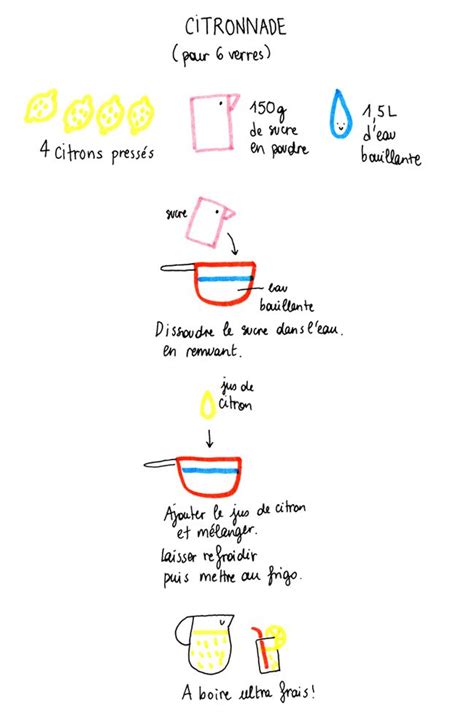 CITRONNADE
(pour 6 verres)
4 citrons pressés
150g
de sucre
en poudre
1,5L
d'eau
bouillante
sucre
eau
bouillante
Dissoudre le sucre dans l'eau.
en remuant.
jus de
citron
Ajouter le jus de citron
et mélanger.
Laisser refroidir
puis mettre au frigo.
A boire ultra frais!